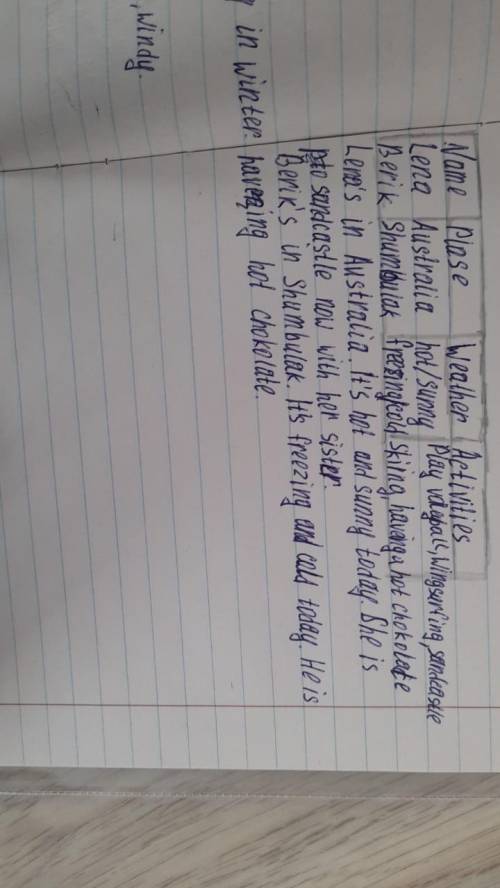 Name Plase Weather Activities
Lena Australia hot/sunny Play voleyball, wingsurfing, sandcastle
Berik Shumbulak freezing/cold skiing, having a hot chokolate
Lena's in Australia. It's hot and sunny today. She is
to sandcastle now with her sister.
Berik's in Shumbulak. It's freezing and cald today. He is
haveing hot chokolate.
in winter.
, windy.